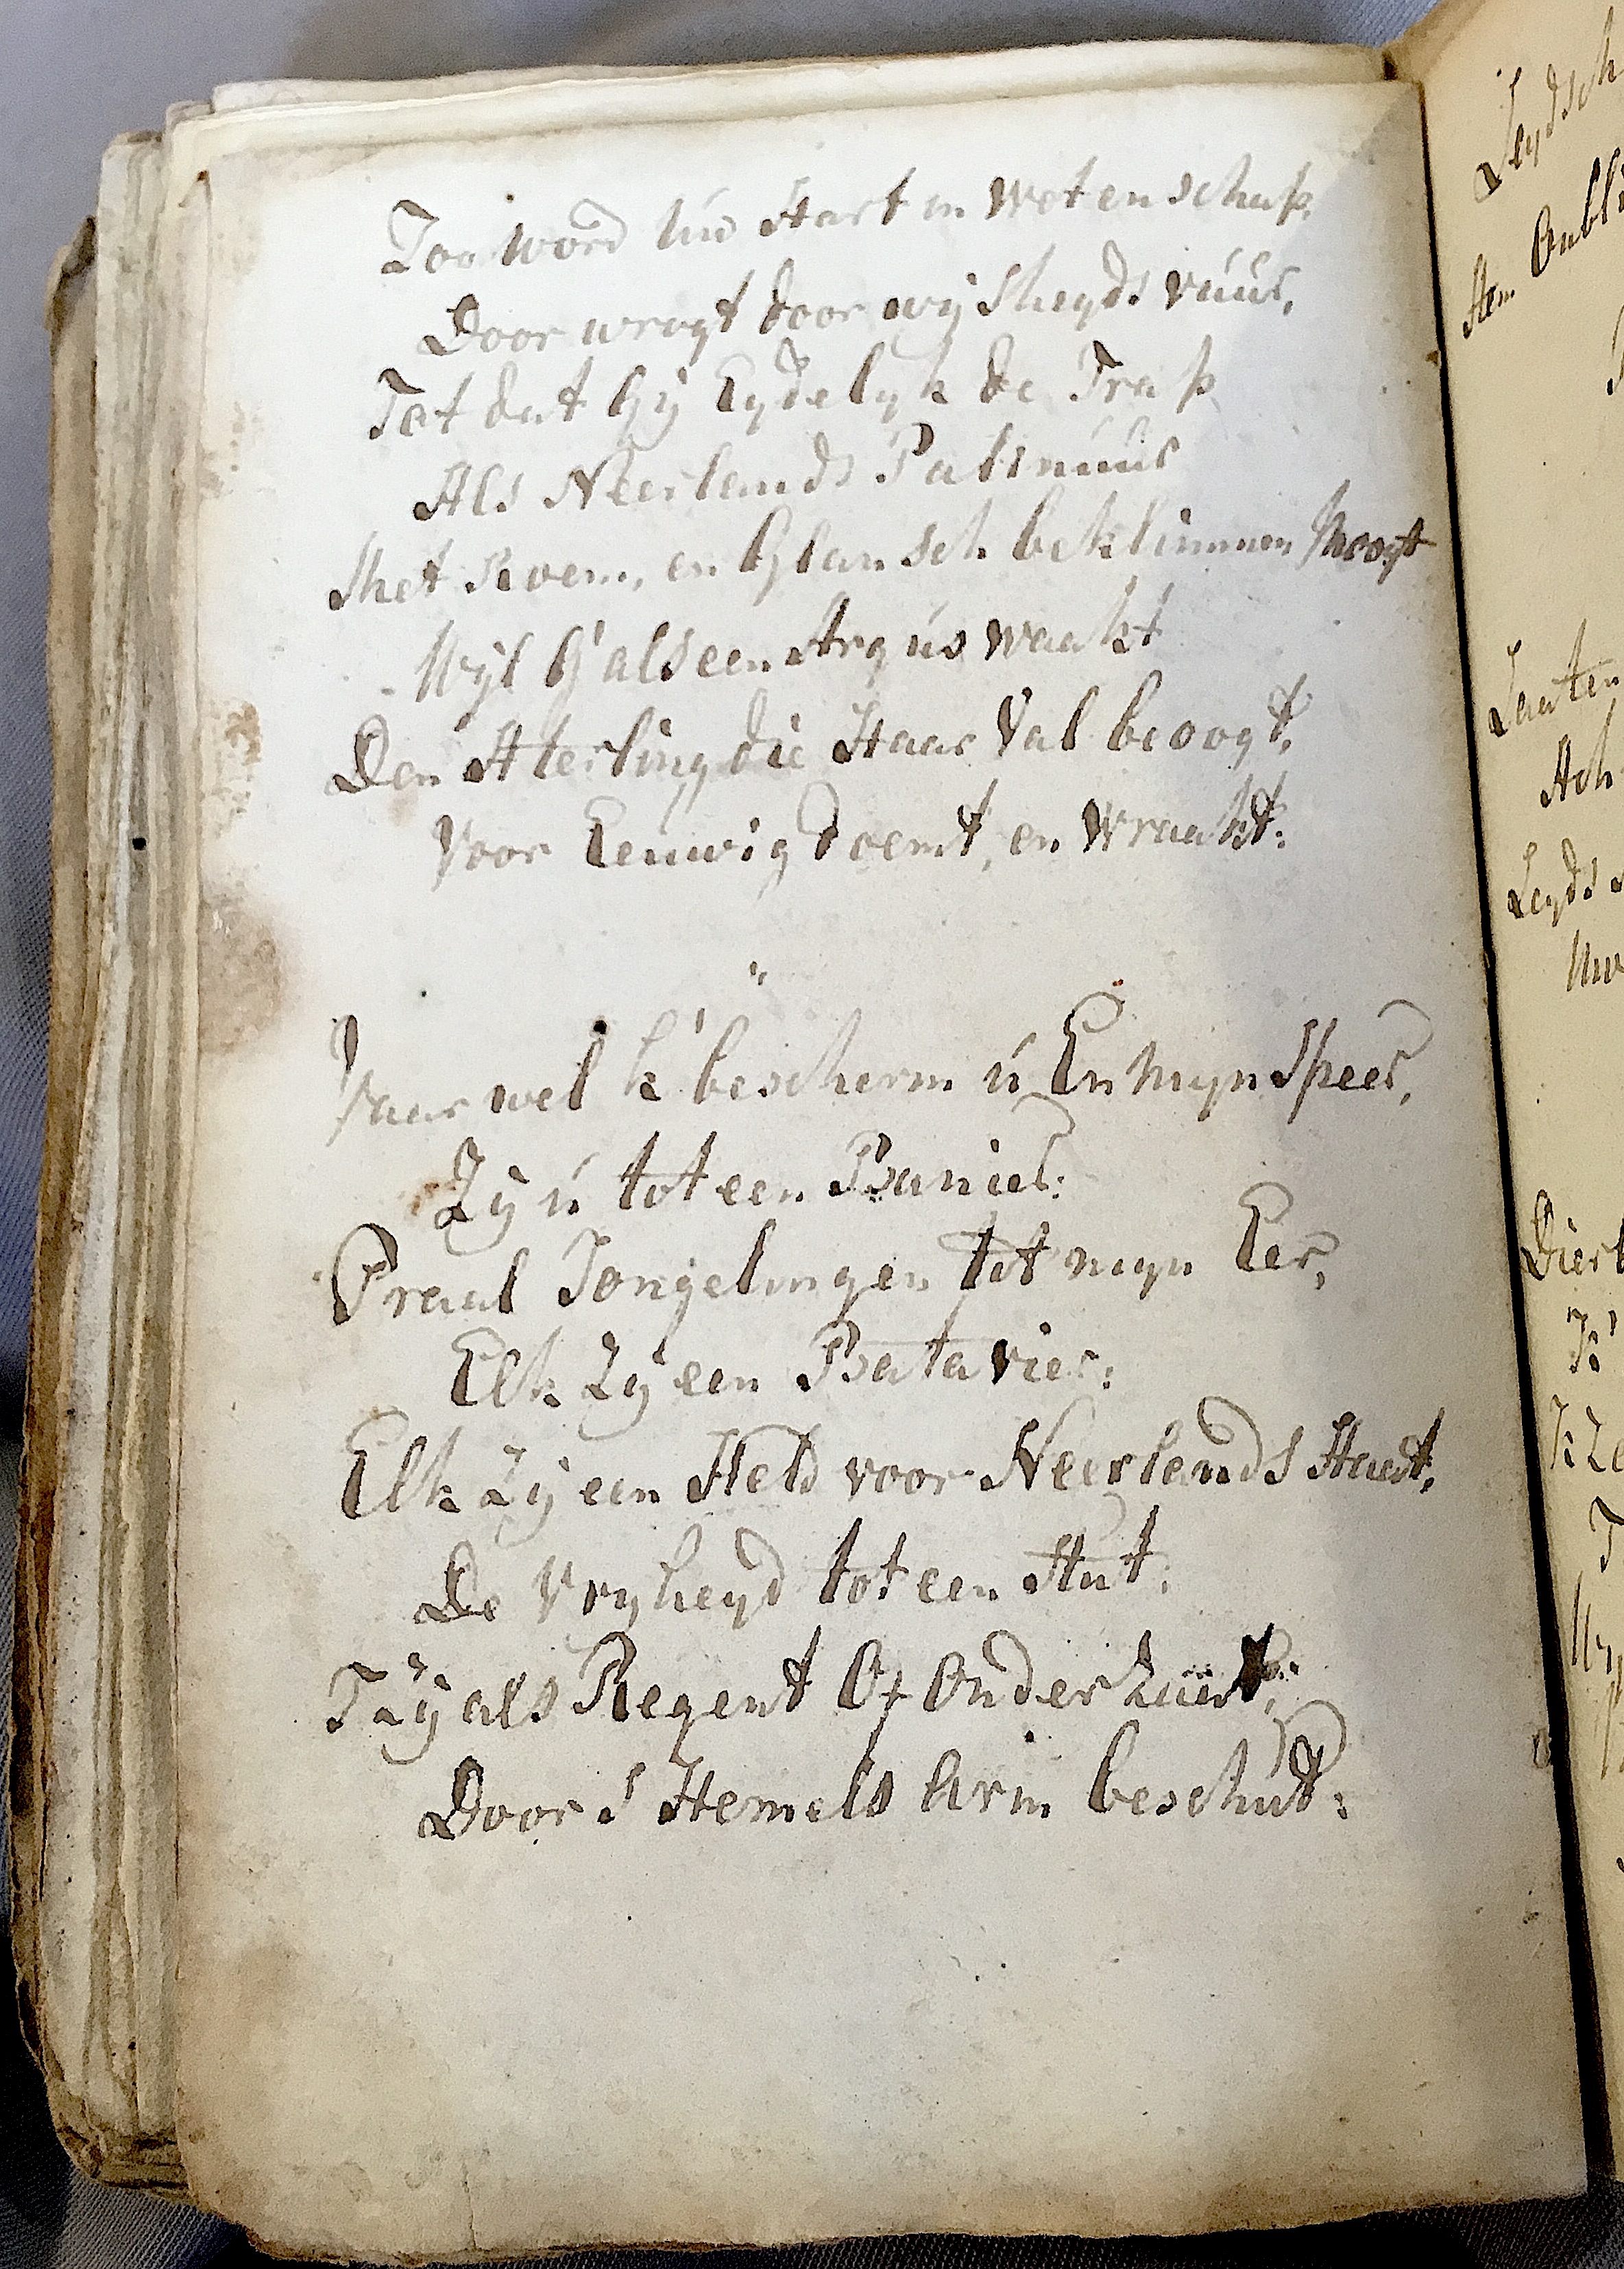 Zoo word úw Hart in Wetenschap,
Door wrogt door wysheyds vuúr,
Tot dat Gy Eydelyk de Trap
Als Neerlands Palinuúr
Met Roem, en Glansch beklimmen Moogt
Wyl G'als een Argús waakt
Den Aterling die Haar Val beoogt,
Voor Eeuwig doemt, en Wraakt:
Vaar wel k' bescherm ú En Myn Speer,
Zy ú tot een Banier:
Praal Jongelingen tot myn Eer,
Elk Zy een Batavier:
Elk Zy een Held voor Neerlands Staat,
De Vryheyd tot een Stut:
T Zy als Regent Of Onder
Door S Hemels Arm beschut:
Leydsch
Hem
Ach
Leyds
K'